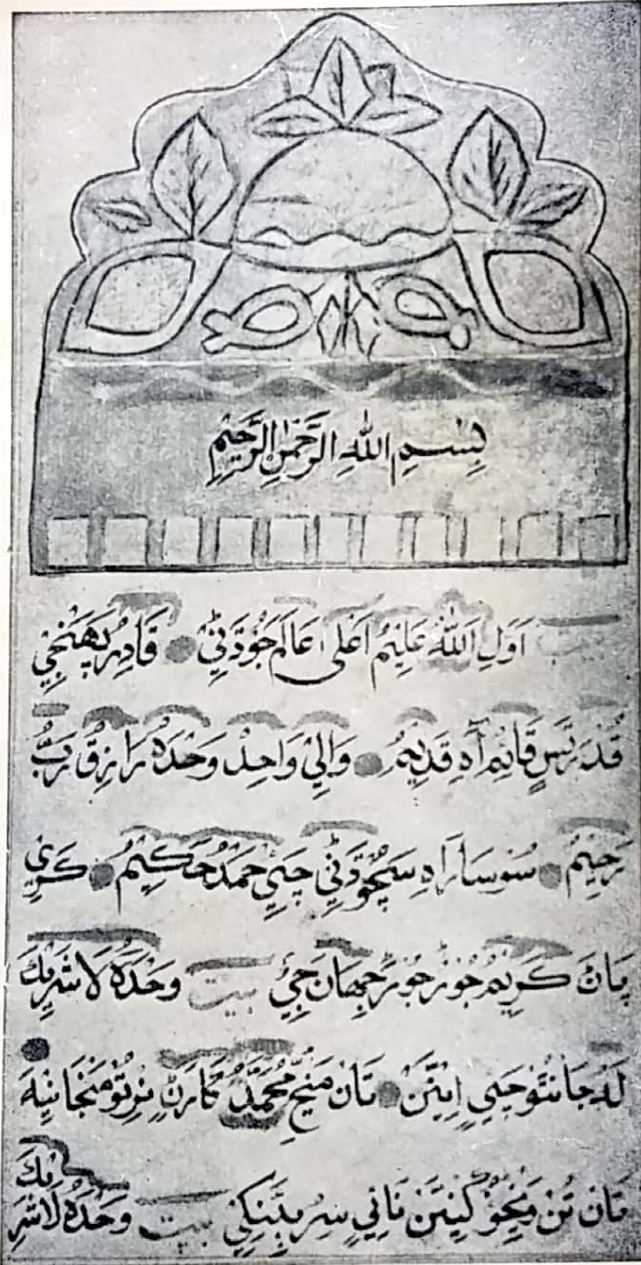 بِسْمِ اللهِ الرَّحْمٰنِ الرَّحِيْمِ
بيت اَوَلِ اَللهُ عَلِيْمُ اَعْلٰى عَالَمَ جُوْدَڻِيْ قَادِرُ پَهَنْجِيْ
قُدْرَتَسٍ قَائِمُ آهِ قَدِيْمُ وَالِيْ وَاحِدُ وَحْدَهٗ رَازِقُ رَبُّ
رَحِيْمُ سُو سَارَاهِ سَچُو ڌَڻِيْ چَئِيْ حَمْدُ حَڪِيْمُ ڪَرِيْ
پَانَ ڪَرِيْمُ جُوْرُ جُوْرَ جِهَانَ جِيْ بيت وَحْدَهٗ لَاشَرِيْكَ
لَهٗ جَانْتُوْ چَئِيْ اِيْتَنَ تَان مَڃِ مُحَمَّدُ ڪَارَڻِيْ نِرْتُوْ مَنْجَانِيْهَ
تَان تُنْ وَڃِئُوْ ڪِيْئَنَ نَائِيْ سِرُ ٻِيَنِکِيْ بيت وَحْدَهٗ لَاشَرِيْكَ